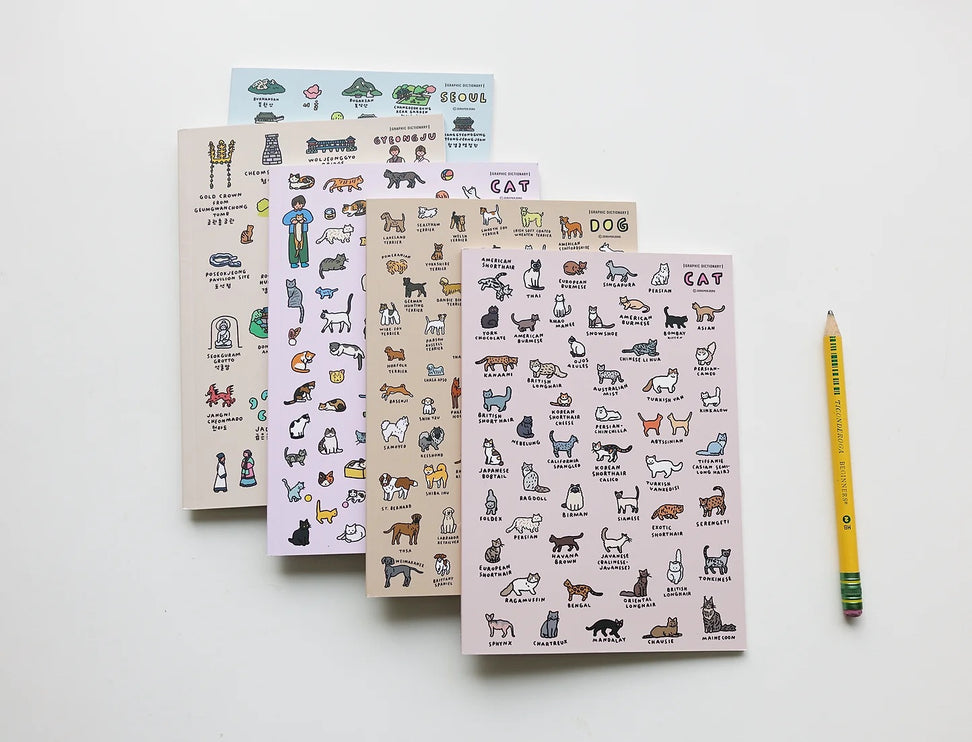 [GRAPHIC DICTIONARY]
SEOUL
BUKHANSAN
북한산
BUGAKSAN
북악산
[GRAPHIC DICTIONARY]
GYEONGJU
WOLJEONGGYO
GOLD CROWN
FROM
GEUMGWANCHONG
TOMB
금관총 금관
POSEOKJEONG
PAVILION SITE
포석정
SEOKGURAM
GROTTO
석굴암
JANGNI
CHEONMADO
천마도
[GRAPHIC DICTIONARY]
CAT
[GRAPHIC DICTIONARY]
DOG
LAKELAND
TERRIER
SEALYHAM
TERRIER
WELSH
TERRIER
SMOOTH FOX
TERRIER
IRISH SOFT COATED
WHEATEN TERRIER
AMERICAN
POMERANIAN
YORKSHIRE
TERRIER
GERMAN
HUNTING
TERRIER
WIRE FOX
TERRIER
PARSON
RUSSELL
TERRIER
NORFOLK
TERRIER
LHASA APSO
BASENJI
SHIH TZU
SAMOYED
KEESHOND
SHIBA INU
ST. BERNARD
LABRADOR
RETRIEVER
TOSA
WEIMARANER
BRITTANY
SPANIEL
[GRAPHIC DICTIONARY]
CAT
AMERICAN
SHORTHAIR
THAI
EUROPEAN
BURMESE
SINGAPURA
PERSIAN
YORK
CHOCOLATE
AMERICAN
BURMESE
KHAO
MANEE
SNOWSHOE
AMERICAN
BURMESE
BOMBAY
ASIAN
KANAANI
BRITISH
LONGHAIR
OJOS
AZULES
CHINESE LI HUA
PERSIAN-
CAMEO
AUSTRALIAN
MIST
TURKISH VAN
KINKALOW
BRITISH
SHORTHAIR
KOREAN
SHORTHAIR
CHEESE
PERSIAN-
CHINCHILLA
NEBELUNG
ABYSSINIAN
JAPANESE
BOBTAIL
CALIFORNIA
SPANGLED
KOREAN
SHORTHAIR
CALICO
TIFFANIE
(ASIAN SEMI-
LONG HAIR)
TURKISH
VANKEDISI
RAGDOLL
FOLDEX
BIRMAN
SIAMESE
EXOTIC
SHORTHAIR
SERENGETI
PERSIAN
EUROPEAN
SHORTHAIR
HAVANA
BROWN
JAVANESE
(BALINESE-
JAVANESE)
BRITISH
LONGHAIR
TONKINESE
RAGAMUFFIN
BENGAL
ORIENTAL
LONGHAIR
SPHYNX
CHARTREUX
MANDALAY
CHAUSIE
MAINE COON
TICONDEROGA
BEGINNERS
HB